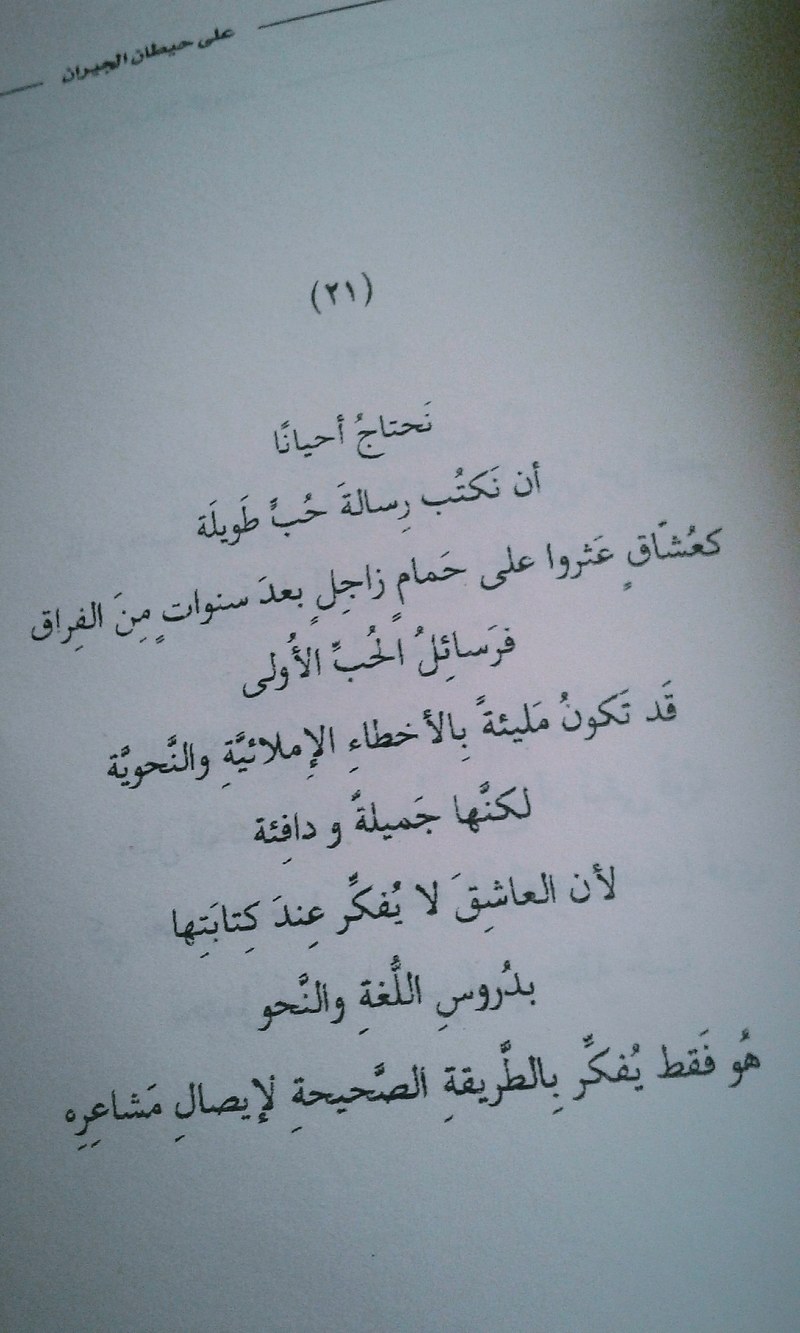 على حيطان الجيران
(٢١)
نَحتاجُ أحيانًا
أن نَكتُب رِسالةَ حُبٍّ طَويلَة
كعُشّاقٍ عَثروا على حَمامٍ زاجِلٍ بعدَ سنواتٍ مِنَ الفِراق
فرَسائِلُ الحُبِّ الأُولى
قَد تَكونُ مَليئةً بِالأخطاءِ الإملائيَّةِ والنَّحويَّة
لكنَّها جَميلةٌ و دافِئة
لأن العاشِقَ لا يُفكِّر عِندَ كِتابَتِها
بدُروسِ اللُّغةِ والنَّحو
هُو فَقط يُفكِّر بِالطَّريقةِ الصَّحيحةِ لإيصالِ مَشاعِرِه